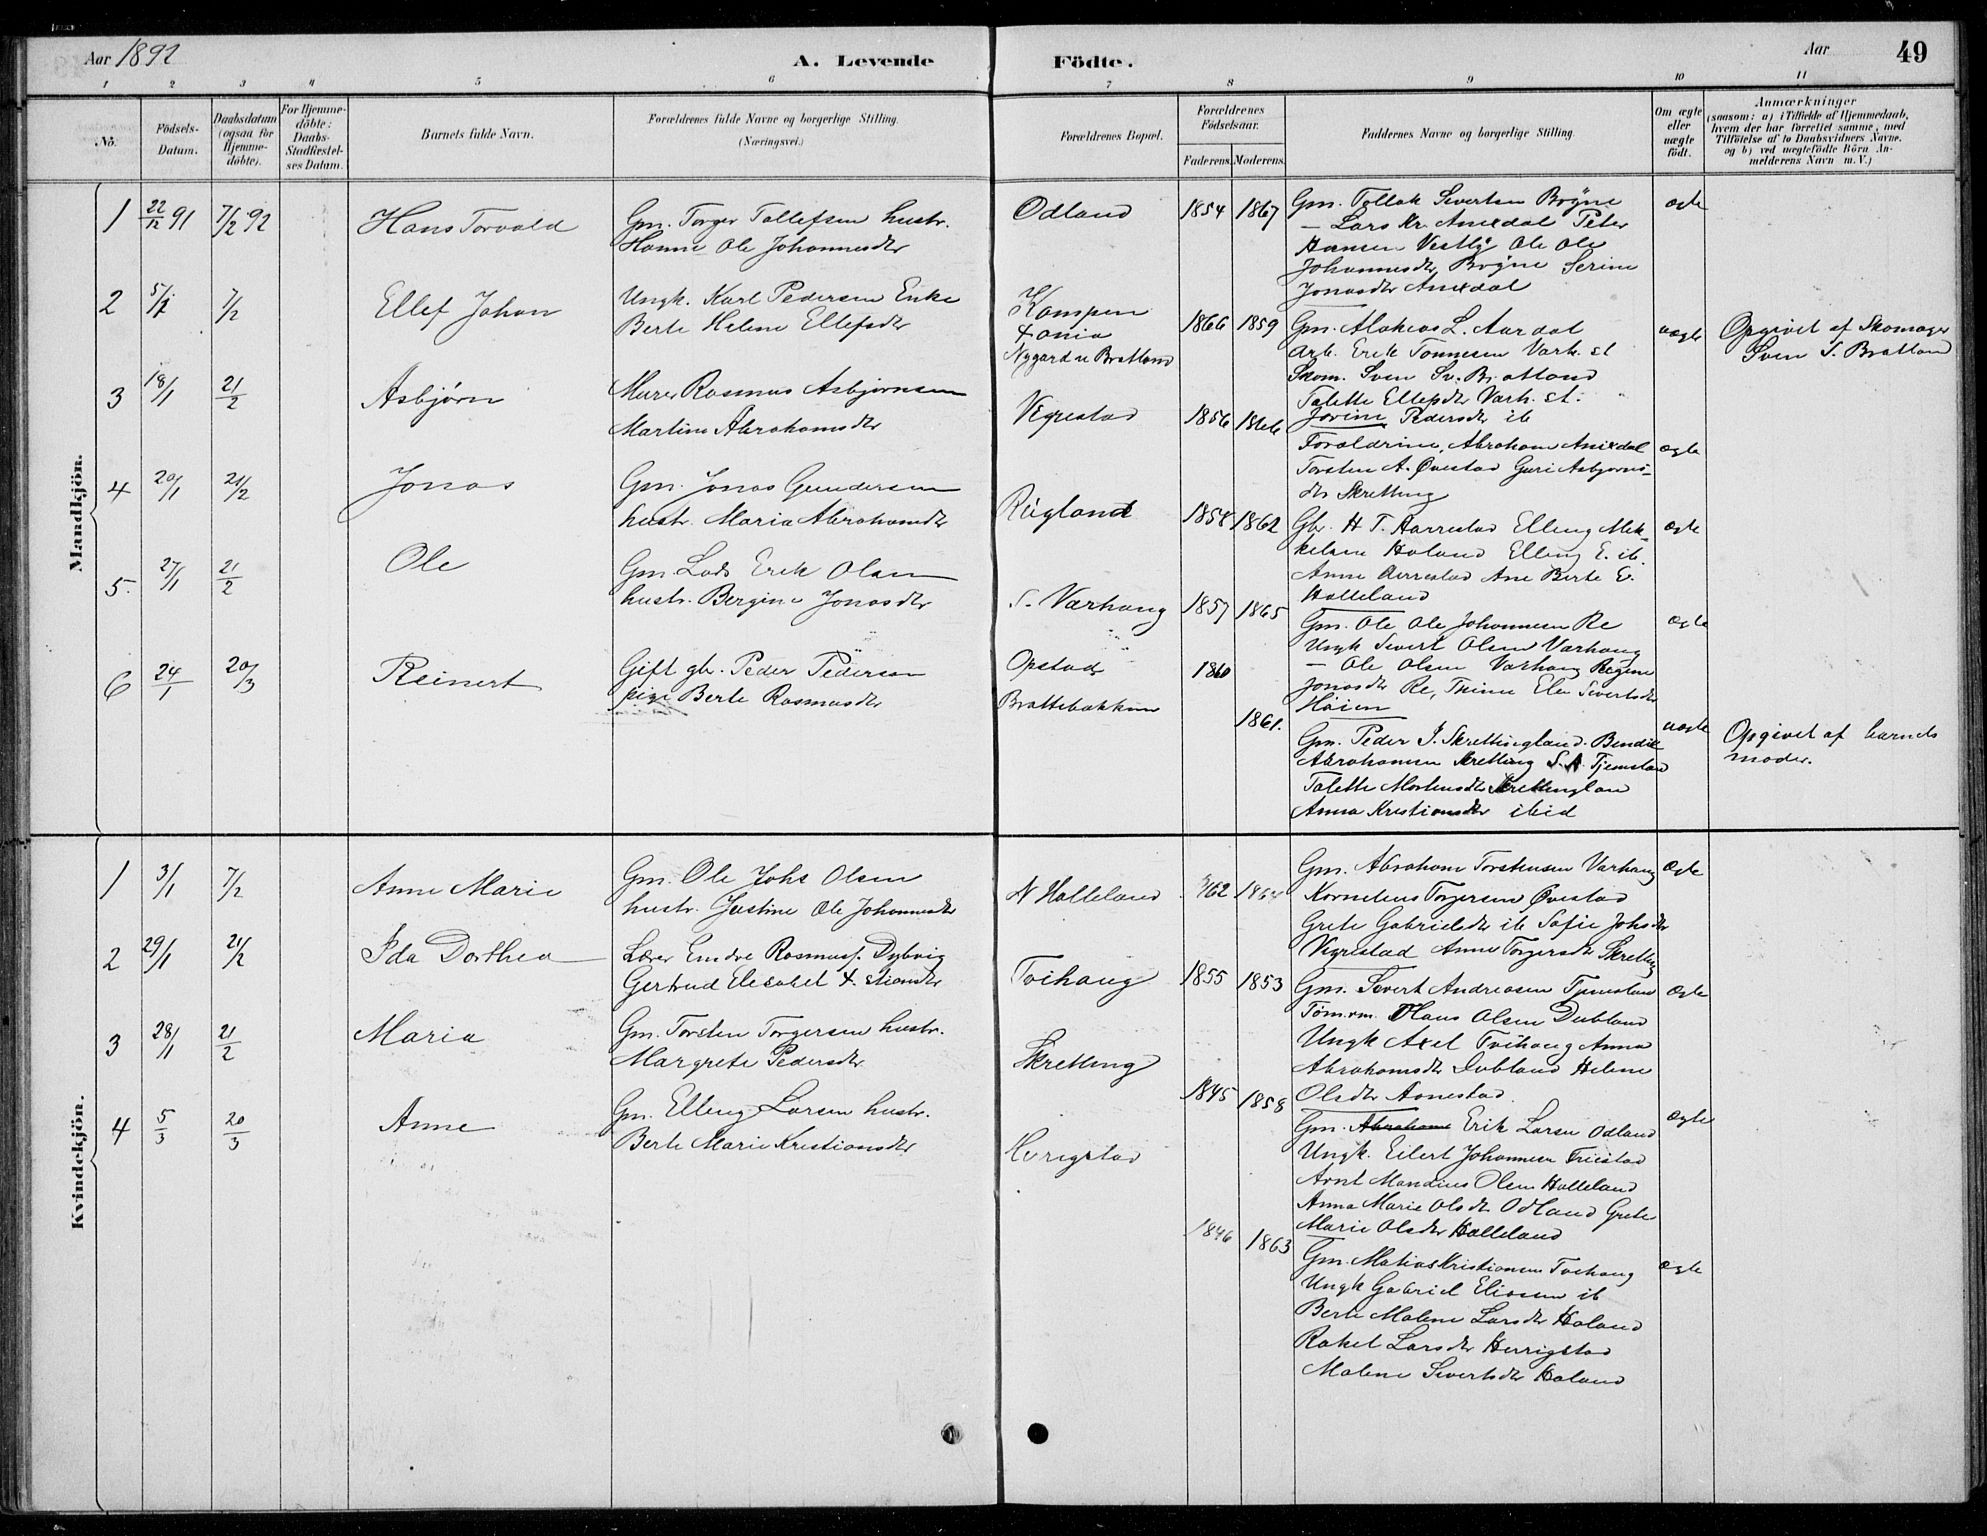 Aar 1892
A. Levende
Födte.
Aar
49
1 2 3 4 5 6 7 8 9 10 11
No.
Födsels-Datum.
Daabsdatum (ogsaa for Hjemme-döbte).
For Hjemme-döbte: Daabs-Stadfæstel-ses Datum.
Barnets fulde Navn.
Forældrenes fulde Navne og borgerlige Stilling.
(Næringsvei.)
Forældrenes Bopæl.
Forældrenes Födselsaar.
Faderens. Moderens.
Faddernes Navne og borgerlige Stilling.
Om ægte eller uægte födt.
Anmærkninger
(saasom: a) i Tilfælde af Hjemmedaab, hvem der har forrettet samme, med Tilföielse af to Daabsvidners Navne. og b) ved uægtefödte Börn Anmelderens Navn m. V.)
Mandkjön.
1 22/12 91 7/2 92 Hans Torvald
Gm. Torger Tollefsen hustr.
Hanne Ole Johannesdtr
Odland 1854 1867
Gm. Tollak Sivertsen Brÿne
— Lars Kr. Anixdal Peter
Hansen Vestly Ole Ole
Johannesdtr Brÿne Serine
Jonasdtr Anixdal
ægte
2 5/1 7/2 Ellef Johan
Ungk. Karl Pedersen Enke
Berte Helene Ellefsdtr
Kampen
Nygard u Bratland
1866 1859
Gm. L. Aardal
Arb. Erik Tonnesen Varh. st
Skom. Sven Sv. Bratland
Talette Ellefsdtr Varh. st.
Jorine Pedersdtr ib
uægte
Opgivet af Skomager
Sven S. Bratland
3 18/1 21/2 Asbjørn
Murer Rasmus Asbjørnsen
Martine Abrahamsdtr
Vigrestad 1856 1866
Forældrine, Abraham Anixdal
Torsten A. Øvestad Guri Asbjorns-
dtr Skretting
ægte
4 20/1 21/2 Jonas
Gm. Jonas Gundersen
hustr. Maria Abrahamsdtr
Rugland 1858 1862
Gbr. H T. Aarrestad Elling Mik-
kelsen Haland Elling E. ib.
Anne Aarrestad Ane Berte E.
Halleland
ægte
5. 27/1 21/2 Ole
Gm. Lods Erik Olsen
hustr. Bergine Jonasdtr
S. Varhaug 1857 1865
Gm. Ole Ole Johannesen Re
Ungk Sivert Olsen Varhaug
— Ole Olsen Varhaug Regine
Jonasdtr Re, Trine Elen Sivertsdtr
Høien
ægte
6 24/1 20/3 Reinert
Gift gbr. Peder Pedersen
pige Berte Rasmusdtr
Opstad
Brattebakken
1860
1861.
Gm. Peder J. Skrettingland. Bendik
Abrahamsen Skretting S. A. Tjemsland
Talette Mortensdtr Skrettingland
Anna Kristiansdtr ibid
uægte
Opgivet af barnets
moder.
Kvindekjön.
1 3/1 7/2 Anne Marie
Gm. Ole Johs Olsen
hustr. Justine Ole Johannesdtr
N Halleland 1862 1864
Gm. Abraham Torstensen Varhaug
Kornelius Torgersen Øvestad
Grete Gabrielsdtr ib Sofie Johsdtr
Vigrestad Anne Torgersdtr Skretting
Ægte
2 29/1 21/2 Ida Dorthea
Lærer Endre Rasmuss. Dybvig
Gertrud Elesabet Kristiansdtr
Tvihaug 1855 1853
Gm. Sivert Andreasen Tjemsland
Tømrm. Hans Olsen Dubland
Ungk Axel Tvihaug Anna
Abrahamsdtr Dubland Helene
Olsdtr Aanestad.
Ægte
3 28/1 21/2 Maria
Gm. Torsten Torgersen hustr.
Margrete Pedersdtr
Skretting 1845 1858
Gm. Abraham Erik Larsen Odland
Ungk. Eilert Johannesen Friestad
Arnt Mandius Olsen Halleland
Anna Marie Olsdtr Odland Grete
Marie Olsdtr Halleland
Ægte
4 5/3 20/3 Anne
Gm. Elling Larsen hustr.
Berte Marie Kristiansdtr
Herigstad 1846 1863
Gm. Matias Kristiansen Tvihaug
Ungk Gabriel Eliasen ib
Berte Malene Larsdtr Haland
Rakel Larsdtr Herrigstad
Malene Sivertsdtr Haland
Ægte